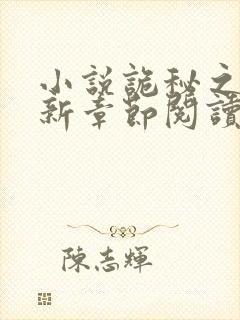 小說詭秘之
新章節閱讀
陳志輝